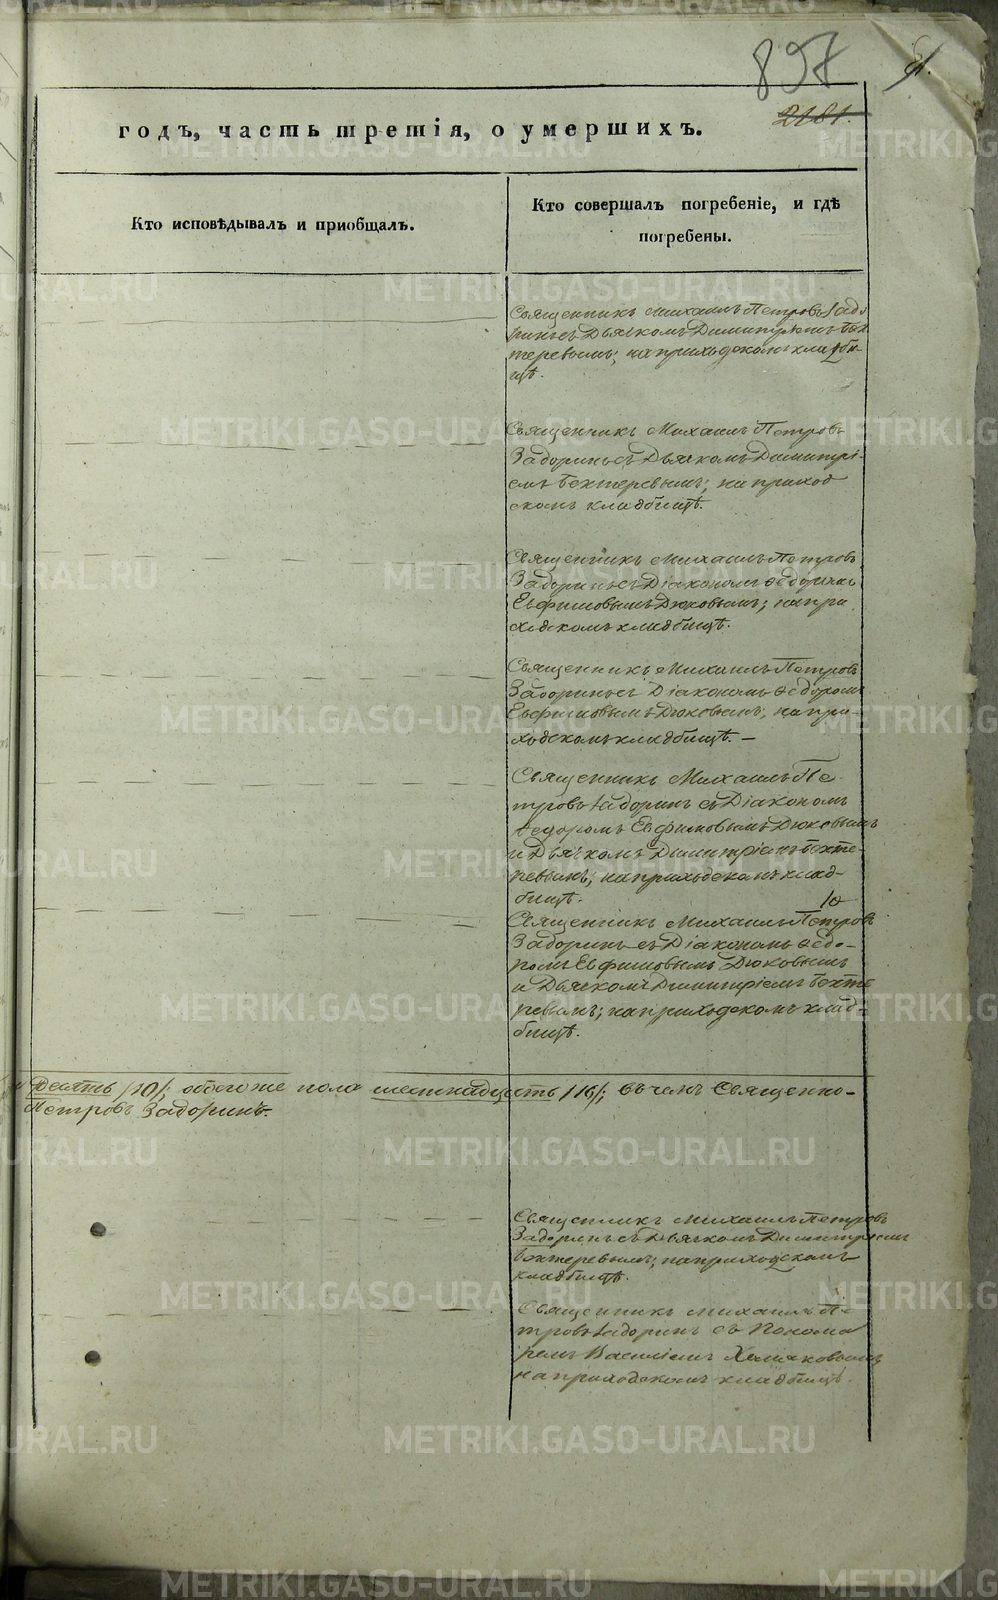 897
2181.
годъ, часть третія, о умершихъ.
Кто исповѣдывалъ и пріобщалъ.
Кто совершалъ погребеніе, и гдѣ
погребены.
Священникъ Михаилъ Петровъ Задо-
ринъ съ Дьячкомъ Димитріемъ Бех-
теревымъ; на приходскомъ кладби-
щѣ.
Священникъ Михаилъ Петровъ
Задоринъ съ Дьячкомъ Димитрі-
емъ Бехтеревымъ; на приход
скомъ кладбищѣ.
Священникъ Михаилъ Петровъ
Задоринъ съ Діакономъ Ѳедоромъ
Евфимовымъ Дюковымъ; на при
ходскомъ кладбищѣ.
Священникъ Михаилъ Петровъ
Задоринъ съ Діакономъ Ѳедоромъ
Евфимовымъ Дюковымъ; на при-
ходскомъ кладбищѣ. —
Священникъ Михаилъ Пе-
тровъ Задоринъ съ Діакономъ
Ѳедоромъ Евфимовымъ Дюковымъ
и Дьячкомъ Димитріемъ Бехте-
ревымъ; на приходскомъ клад-
бищѣ.
Священникъ Михаилъ Петровъ
Задоринъ съ Діакономъ Ѳедо-
ромъ Евфимовымъ Дюковымъ
и Дьячкомъ Димитріемъ Бехте
ревымъ; на приходскомъ клад-
бищѣ.
Десять /10/; обоего же пола шестнадцать /16/; въ чемъ Священно-
Петровъ Задоринъ.
Священникъ Михаилъ Петровъ
Задоринъ съ Дьячкомъ Димитріемъ
Бехтеревымъ; на приходскомъ
кладбищѣ.
Священникъ Михаилъ Пе-
тровъ Задоринъ съ Понома
ремъ Василіемъ
на приходскомъ кладбищѣ.
METRIKI.GASO-URAL.RU